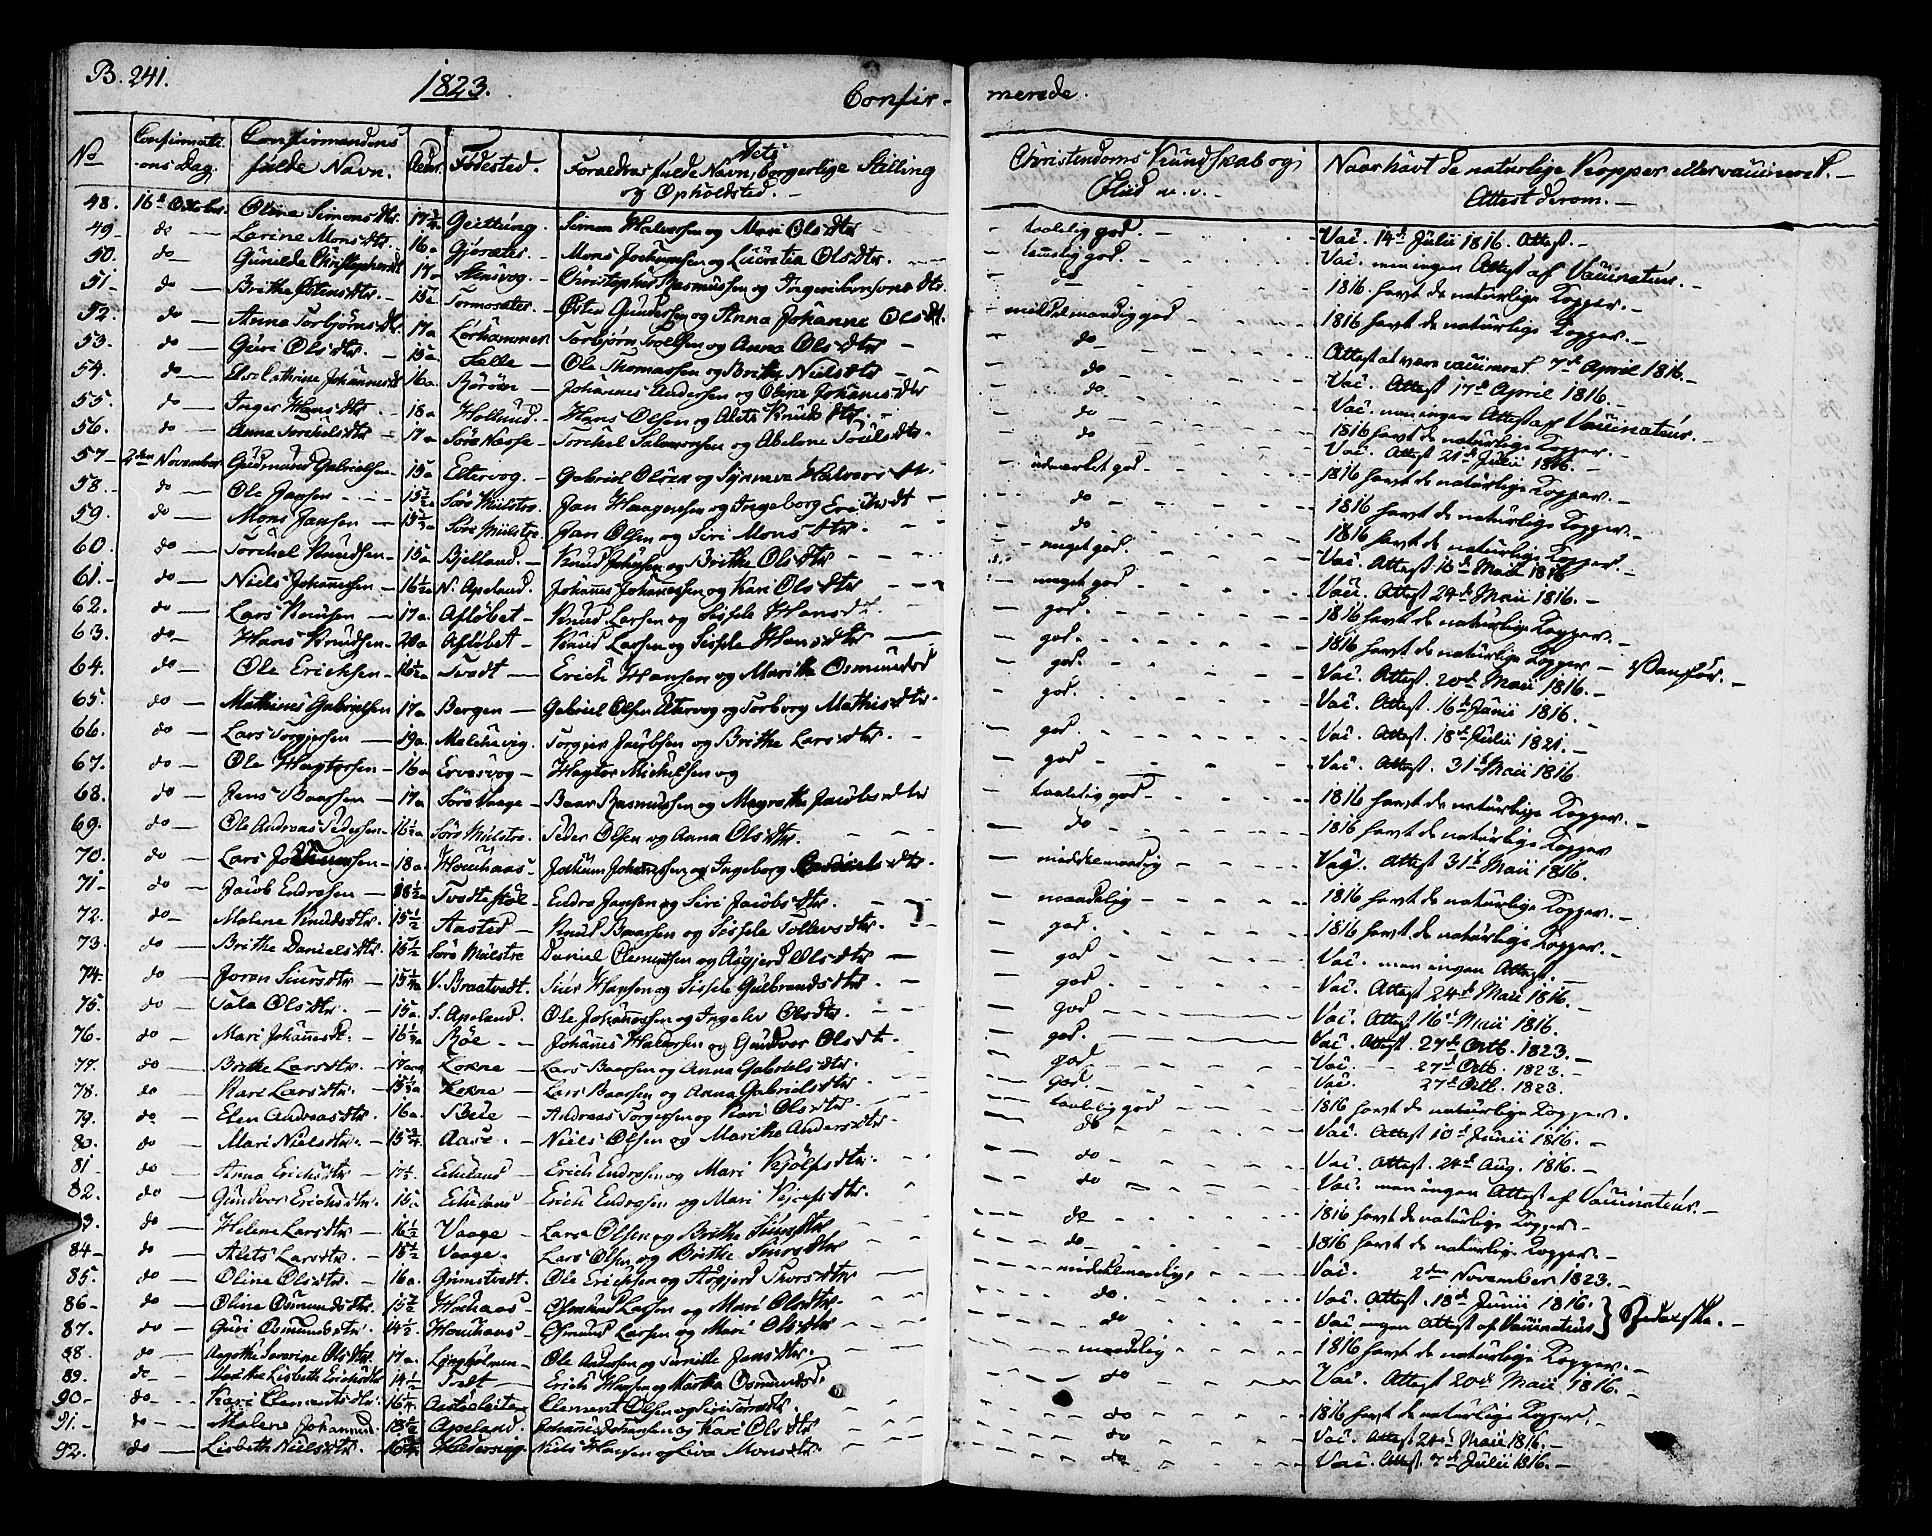 B. 241.
1823.
Confir-
merede.
No
Confirmati-
ons Dag.
Confirmandens
fulde Navn.
Alder
Fødested.
Dets
Forældres fulde Navn, borgerlige Stilling
og Opholdsted. -
Christendoms Kundskab og
Flid m. v. -
Naar havt de naturlige Kopper eller vaccineret. -
Attest derom. -
48. 16d October. Oline Simonsdtr. 17½ Geitung Simon Halvorsen og Mari Olsdtr - taalelig god. - Vac. 14d Julii 1816. Attest. -
49 - do - Larine Monsdtr. 16a Gjøráter - Mons Jochumsen og Lucretia Olsdtr. - temmelig god. Vac. men ingen Attest af Vaccinateur. -
50. do - Gunilde Christophersdt 17a Stensvog - Christopher Rasmussen og dtr - do 1816 havt de naturlige Kopper. -
51 - do - Brithe Østensdtr - 15a Østen Gundersen og Anna Johanne Olsdt. - middelmaadig god 1816 havt de naturlige Kopper. -
52. do - Anna Torbjørnsdtr 17a Torbjørn og Anna Olsdtr - do Attest at være vaccineret 7de April 1816. -
53. do - Guri Olsdtr. - 15a Ole Thomassen og Brithe Nielsdtr - do Vac. Attest 17d April 1816. -
54. do - Else Cathrine Johannesdt 16a Røvær - Johannes Andersen og Oline Johanesdtr - do Vac. men ingen Attest af Vaccinateur. -
55. do - Inger Hansdtr. - 18a Hollund. - Hans Olsen og Alets Knudsdtr. - do 1816 havt de naturlige Kopper. -
56. do - Anna Torchelsdtr - 17a Torchel Salamonsen og Abelone Poulsdtr. - do Vac. Attest 21d Julii 1816. -
57 - 2den November Gudmund Gabrielsen - 15a Eltervog. - Gabriel Olsen og Synneva Halvorsdtr. - udmerket god - 1816 havt de naturlige Kopper. -
58. do - Ole Jansen - 15½ Søre Mulstre. Jan Haagensen og Ingeborg Erichsdt - do 1816 havt de naturlige Kopper. -
59. do - Mons Jansen - Søre Mulstre Jan Olsen og Siri Monsdtr. - do 1816 havt de naturlige Kopper. -
60. do - Torchel Knudsen - 15a Bjelland. - Knud og Brithe Olsdtr - meget god. Vac. Attest 16d Maii 1816
61. - do - Niels Johannesen - 16½ N. Apeland. Johannes Johannessen og Kari Olsdtr - meget god Vac. Attest 24d Maii 1816. -
62. do - Lars Knudsen - 17a Afløbet - Knud Larsen og Sissele Hansdt. - god. 1816 havt de naturlige Kopper. -
63. do - Hans Knudsen - 20a Afløbet - Knud Larsen og Sissele Hansdtr - god. 1816 havt de naturlige Kopper - Vanfør. -
64. do - Ole Erichsen - 16½ Tvedt - Erich Hansen og Marithe Osmundsd - god. Vac. Attest. 20d Maii 1816. -
65. do - Mathias Gabrielsen 17a Bergen - Gabriel Olsen Eltervog og Torborg Mathisdtr. - god. Vac. Attest. 16d Junii 1816. -
66. do - Lars Torgjersen - 19a Melchevig. Torgjer Jacobsen og Brithe Larsdtr. - god. Vac. Attest. 18d Julii 1821. -
67. do - Ole Hagtorsen - 16a Ervesvog - Hagtor Mickelsen og - god Vac. Attest. 31d Maii 1816.
68. do - Jens Baarsen - 17a Søre Vaage - Baar Rasmussen og Magrethe Jacobsdtr - taalelig god - 1816 havt de naturlige Kopper. -
69. do - Ole Andreas Pedersen - 16½ Søre Mulstre. Peder Olsen og Anna Olsdtr. - do 1816 havt de naturlige Kopper
70. do - Lars Jochumsen - 18a Houchaas - Jochum Johannessen og Ingeborg dtr. - middelmaadig Vac. Attest 31d Maii 1816.
71 - do Jacob Endresen - 18½ Endre Jansen og Siri Jacobsdtr. - maadelig 1816 havt de naturlige Kopper. -
72. do - Malene Knudsdtr. 15½ Aasted - Knud Baarsen og Sissele Tollevsdtr. - god. 1816 havt de naturlige Kopper. -
73. do - Brithe Danielsdtr. 15½ Søre Mulstre Daniel Clementsen og Asgjerd Olsdtr - god Vac. men ingen Attest. -
74. do - Joren Siursdtr. 15¼ V. Braatvedt. Siur Hansen og Sissele Gulbrandsdtr. - god. Vac. Attest 24d Maii 1816. -
75. do - Olsdtr. - 15a S. Apeland. Ole Johannessen og Ingelev Olsdtr. - god Vac. Attest 16d Maii 1816.
76. do - Mari Johannesdt. - Røe - Johannes Halvorsen og Gundvor Olsdt. - god. Vac. Attest. 27d Octb. 1823. -
77. do - Brithe Larsdtr. Lokne - Lars Baarsen og Anna Gabrielsdtr. - god Vac. 27d Octb. 1823. -
78. do - Kari Larsdtr. Lokne - Lars Baarsen og Anna Gabrielsdtr. - god. Vac. 27d Octb. 1823.
79. do - Elen Andreasdtr. 16a. Andreas Torgersen og Kari Olsdtr - taalelig god 1816 havt de naturlige Kopper.
80. do - Mari Nielsdtr. - 15¾ Aase. - Niels Olsen og Marithe Andersdtr - do Vac. Attest 10d Junii 1816. -
81 do - Anna Erichsdtr - 17½ Eikeland - Erich Endresen og Mari dtr. - do Vac. Attest. 24d Aug. 1816. -
82. do - Gundvor Erichsdtr. 15a Eikeland Erich Endresen og Mari dtr. - do Vac. men ingen Attest af Vaccinateur. -
83. do - Helene Larsdtr. 16½ Vaage - Lars Olsen og Brithe Siursdtr - do 1816 havt de naturlige Kopper. -
84 - do - Alets Larsdtr. 15½ Vaage. Lars Olsen og Brithe Siursdtr - do 1816 havt de naturlige Kopper. -
85. do - Oline Olsdtr. - 16a. Grimstvedt. Ole Erichsen og Asgjerd Thorsdtr - middelmaadig, Vac. 2den November 1823. -
86 - do - Oline Osmundsdtr. 15½ Houchaas - Osmund Larsen og Mari Olsdtr. - do. Vac. Attest. 18d Junii 1816.
87. do - Guri Osmundsdtr. 14½ Houchaas - Osmund Larsen og Mari Olsdtr - do Vac ingen Attest af Vaccinateur } Spedalske. -
88 do - Aagothe Severine Olsdtr. 17a. Lyngholmen - Ole Andersen og Pernille Jensdtr. - maadelig 1816 havt de naturlige Kopper. -
89. do - Marithe Lisbeth Erichsdtr 14½ Tvedt - Erich Hansen og Martha Osmundsd. - do Vac. Attest 20d Maii 1816. -
90 - do - Kari Clementsdtr. 16¼ Clement Olsen og dtr - do 1816 havt de naturlige Kopper. -
91. - do - Malene Johannesd. 18½ Apeland. Johannes Johansen og Kari Olsdtr - do Vac. Attest 24d Maii 1816. -
92. do - Lisbeth Nielsdtr. Niels Hansen og Monsdtr. - do Vac. Attest. 7d Julii 1816. -